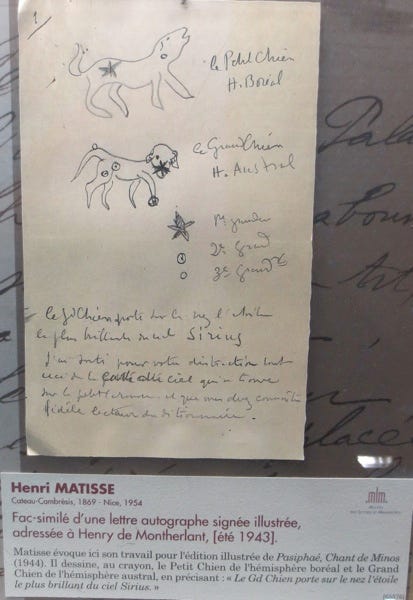 1
le Petit Chien
H. Boréal
le Grand Chien
H. Austral
1re grandeur
2e Grand
3e Grand
le Gd Chien porte sur le nez l'étoile
la plus brillante du ciel Sirius
J'ai sorti pour votre distraction tout
ceci de la carte du ciel qui se trouve
sur le petit et que vous devez connaître
fidèle lecteur du dictionnaire.
Henri MATISSE
Cateau-Cambrésis, 1869 - Nice, 1954
mlm
MUSÉE
DES LETTRES ET MANUSCRITS
Fac-similé d'une lettre autographe signée illustrée,
adressée à Henry de Montherlant, [été 1943].
Matisse évoque ici son travail pour l'édition illustrée de Pasiphaé, Chant de Minos
(1944). Il dessine, au crayon, le Petit Chien de l'hémisphère boréal et le Grand
Chien de l'hémisphère austral, en précisant : « Le Gd Chien porte sur le nez l'étoile
le plus brillant du ciel Sirius. »